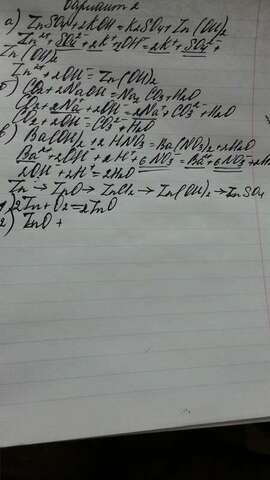 Вариант 2
а) ZnSO4+2KOH=K2SO4+Zn(OH)2
Zn²⁺+SO4²⁻+2K⁺+2OH⁻=2K⁺+SO4²⁻+
Zn(OH)2
Zn²⁺+2OH⁻=Zn(OH)2
б) CO2+2NaOH=Na2CO3+H2O
CO2+2Na⁺+2OH⁻=2Na⁺+CO3²⁻+H2O
CO2+2OH⁻=CO3²⁻+H2O
в) Ba(OH)2+2HNO3=Ba(NO3)2+2H2O
Ba²⁺+2OH⁻+2H⁺+6NO3⁻=Ba²⁺+6NO3⁻+2H2O
2OH⁻+2H⁺=2H2O
Zn→ZnO→ZnCl2→Zn(OH)2→ZnSO4
1) 2Zn+O2=2ZnO
2) ZnO+